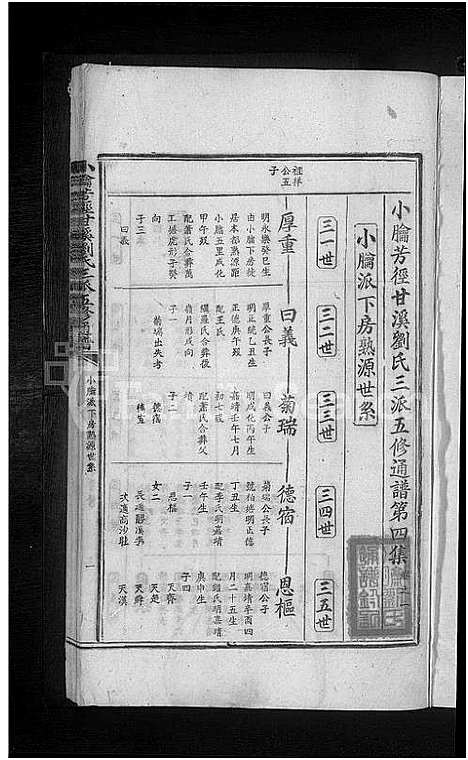 小腀芳徑甘溪劉氏三派五修通譜第四集
小腀派下房熟源世系
三一世
三二世
三三世
三四世
三五世
禮祥公五子
厚重
明永樂癸巳生
由小腀下房徙
居本都熟源距
小腀五里成化
甲午歿
配蕭氏合葬
王塘虎形子癸
向
子三
曰義
曰義
厚重公長子
明正統乙丑生
正德庚午歿
配王氏
繼羅氏合葬
嶺月形戌向
子一
菊瑞出失考
菊瑞
曰義公子
明成化丙午生
嘉靖壬午七月
初七歿
配蕭氏合葬父
塘
子二
德宿
德宿
菊瑞公長子
號柏塘明正德
丁丑生
配李氏明嘉靖
壬午生
子一
恩樞
女二
長適嚴溪李
次適高沙駐
恩樞
德宿公子
明嘉靖辛酉四
月二十五生
配鍾氏明嘉靖
庚申生
子四
天奇
天楚
天舜
天漢
小腀派下房熟源世系
一